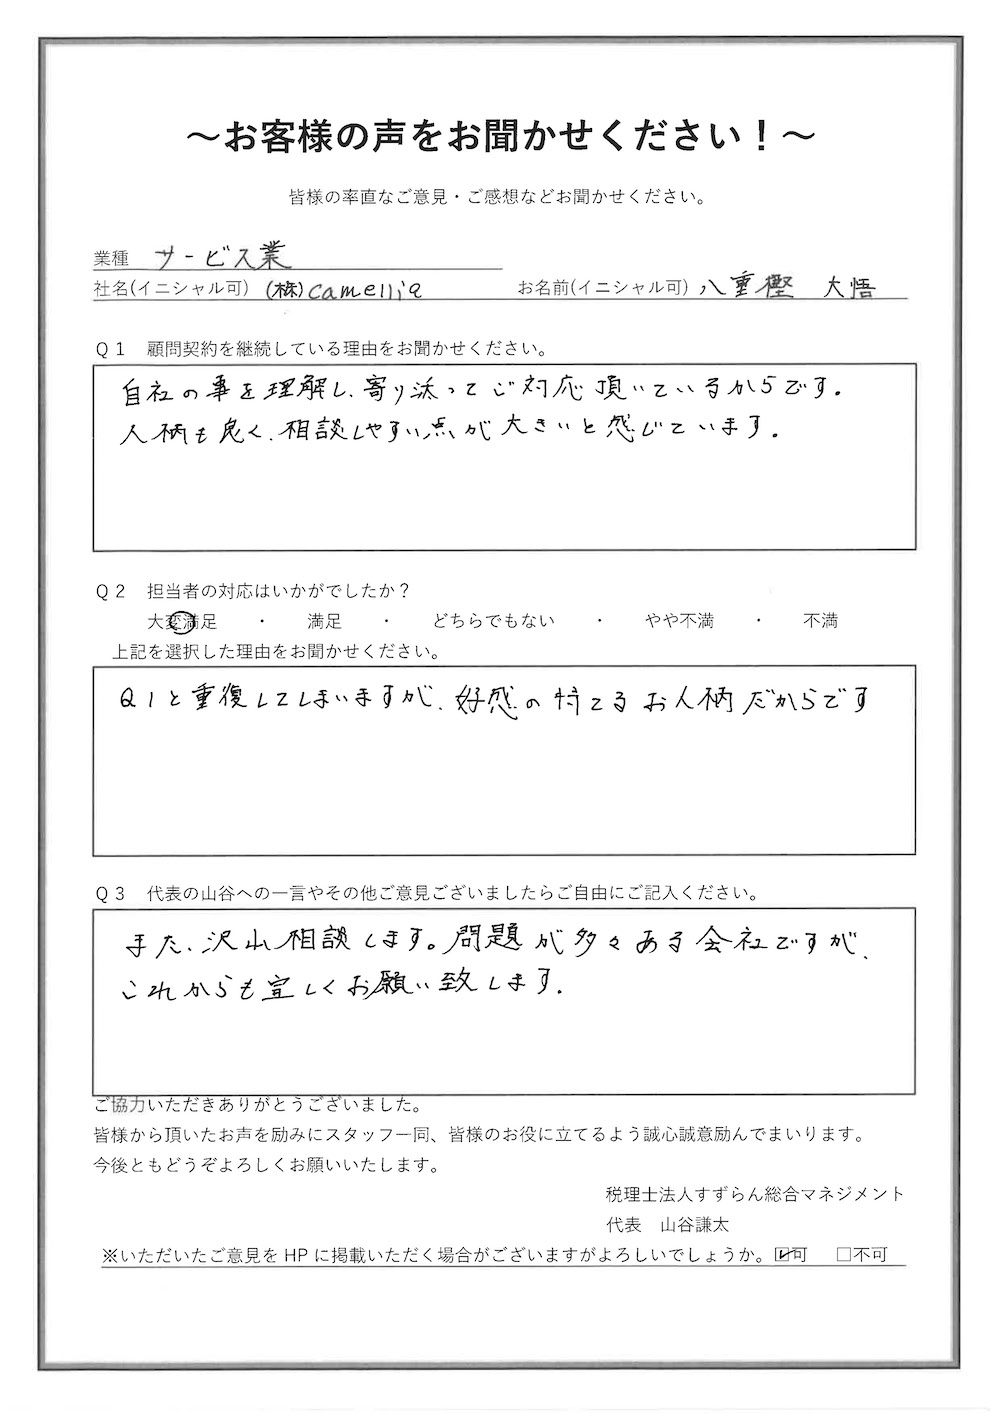 ～お客様の声をお聞かせください！～
皆様の率直なご意見・ご感想などお聞かせください。
業種 サービス業
社名(イニシャル可) (株)camellia お名前(イニシャル可) 八重樫 大悟
Q1 顧問契約を継続している理由をお聞かせください。
自社の事を理解し、寄り添ってご対応頂いているからです。
人柄も良く、相談しやすい点が大きいと感じています。
Q2 担当者の対応はいかがでしたか？
大変満足 ・ 満足 ・ どちらでもない ・ やや不満 ・ 不満
上記を選択した理由をお聞かせください。
Q1と重復してしまいますが、好感の持てるお人柄だからです
Q3 代表の山谷への一言やその他ご意見ございましたらご自由にご記入ください。
また、沢山相談します。問題が多々ある会社ですが、
これからも宜しくお願い致します.
ご協力いただきありがとうございました。
皆様から頂いたお声を励みにスタッフ一同、皆様のお役に立てるよう誠心誠意励んでまいります。
今後ともどうぞよろしくお願いいたします。
税理士法人すずらん総合マネジメント
代表 山谷謙太
※いただいたご意見をHPに掲載いただく場合がございますがよろしいでしょうか。☑可 □不可